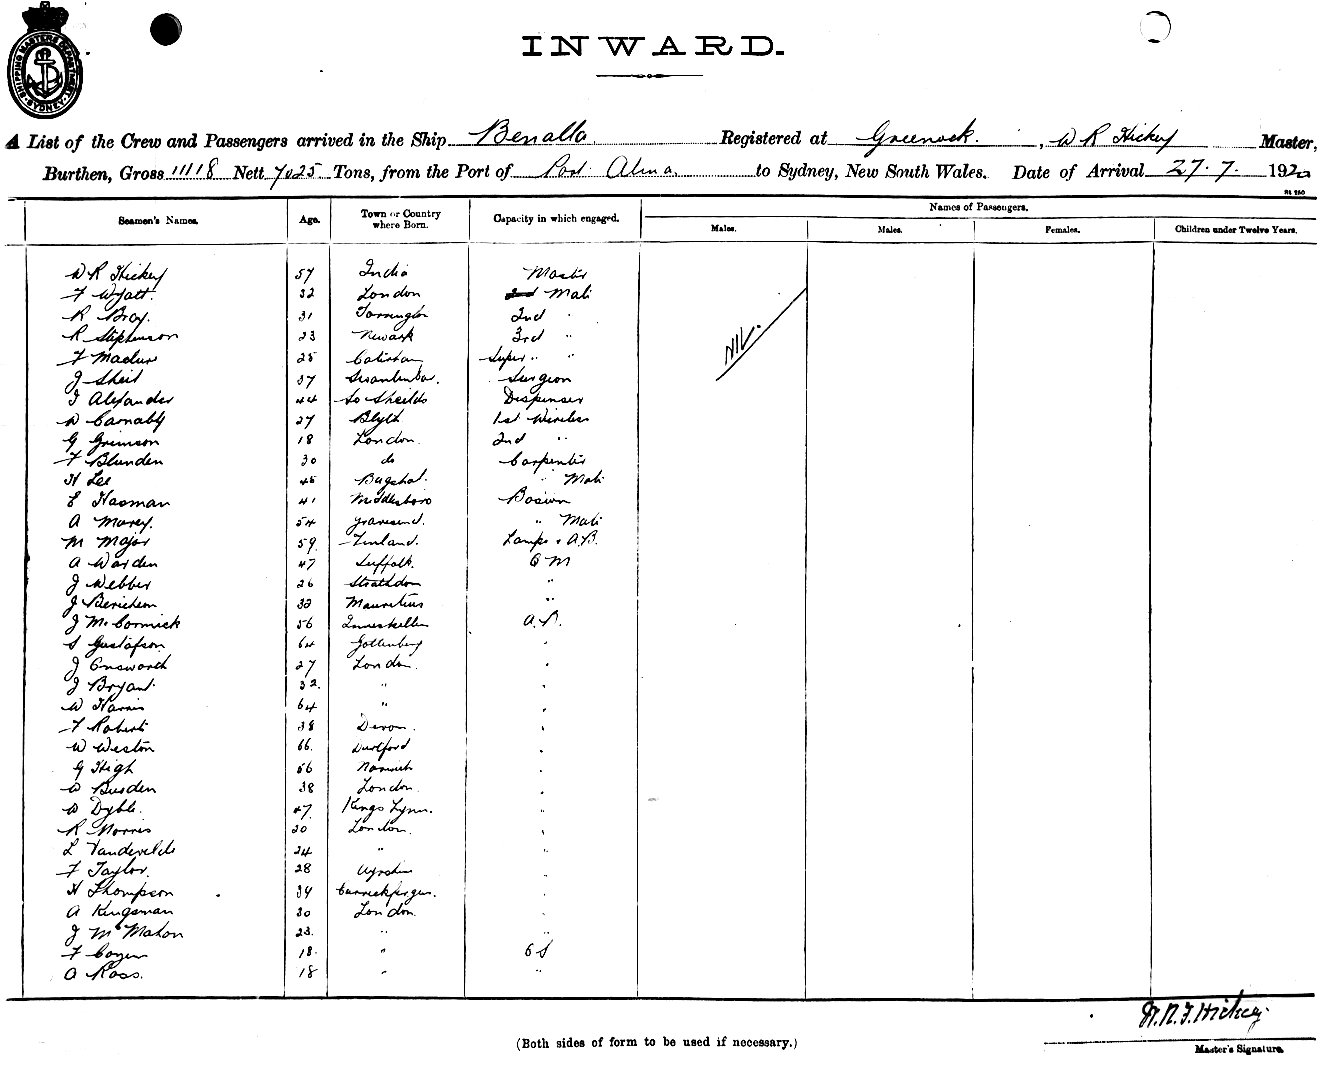 SHIPPING MASTERS DEPARTMENT SYDNEY
INWARD.
A List of the Crew and Passengers arrived in the Ship Benalla Registered at Greenock, W R Hickey Master,
Burthen, Gross 11118 Nett 7025 Tons, from the Port of Port Alma to Sydney, New South Wales. Date of Arrival 27.7. 1920
Seamen's Names. Age. Town or Country where Born. Capacity in which engaged. Names of Passengers.
Males. Males. Females. Children under Twelve Years.
W R Hickey 57 India Master
F Wyatt. 32 London Mate
R Bray. 31 Torrington 2nd "
NIL.
R Stephenson 23 Newark 3rd "
F 25 Super " "
J Sheil 37 Surgeon
Alexander 44 So Sheilds Dispenser
W Carnaby 27 Blyth 1st Wireless
G Grimson 18 London. 2nd "
F Blunden 30 do Carpenter
H Lee 45 Bagshot. " Mate
E Hasman 41 Middlesboro Bosun
A Marey. 54 Gravesend. " Mate
M Major 59. Finland. Lamps & A.B.
A Warden 47 Suffolk. Q M
J Webber 26 Strathdon "
J 32 Mauritius "
J McCormick 56 Inniskillen A.B.
S Gustafson 64 Gottenberg "
J Emsworth 27 London. "
J Bryant. 32. " "
W Harris 64 " "
F Roberts 38 Devon. "
W Weston 66. Dartford "
G High 56 Norwich "
W Burden 38 London. "
W Dyble. 47. Kings Lynn. "
R Norris 30 London. "
L Vandevelde 24 " "
F Taylor. 28 Ayrshire "
H Thompson 34 Carrickfergus. "
A Kingsman 30 London. "
J McMahon 23. " "
F 18. " O S
A Ross. 18 " "
W.R.F. Hickey.
Master's Signature.
(Both sides of form to be used if necessary.)